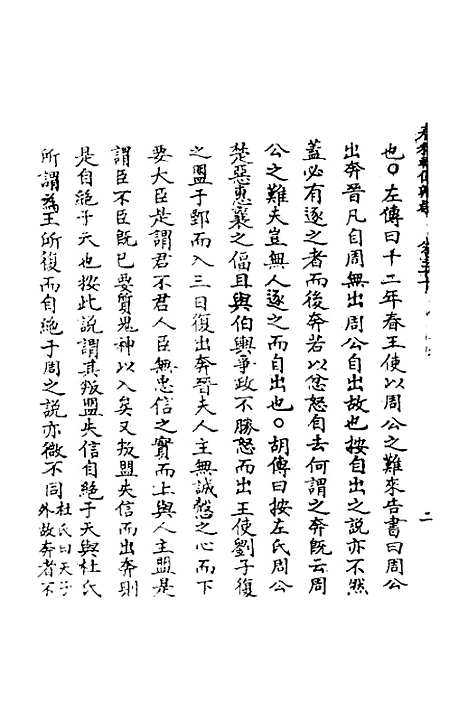 也○左傳曰十二年春王使以周公之難來告書曰周公
出奔晉凡自周無出周公自出故也按自出之說亦不然
蓋必有逐之者而後奔若以忿怒自去何謂之奔既云周
公之難夫豈無人逐之而自出也○胡傳曰按左氏周公
楚惡惠襄之偪且與伯輿爭政不勝怒而出王使劉子復
之盟于鄄而入三日復出奔晉夫人主無誠慤之心而下
要大臣是謂君不君人臣無忠信之實而上與人主盟是
謂臣不臣既已要質鬼神以入矣又扳盟失信而出奔則
是自絕于天也按此說謂其叛盟失信自絕于天與杜氏
所謂為王所復而自絕于周之說亦微不同杜氏曰天子
外故奔者不
二